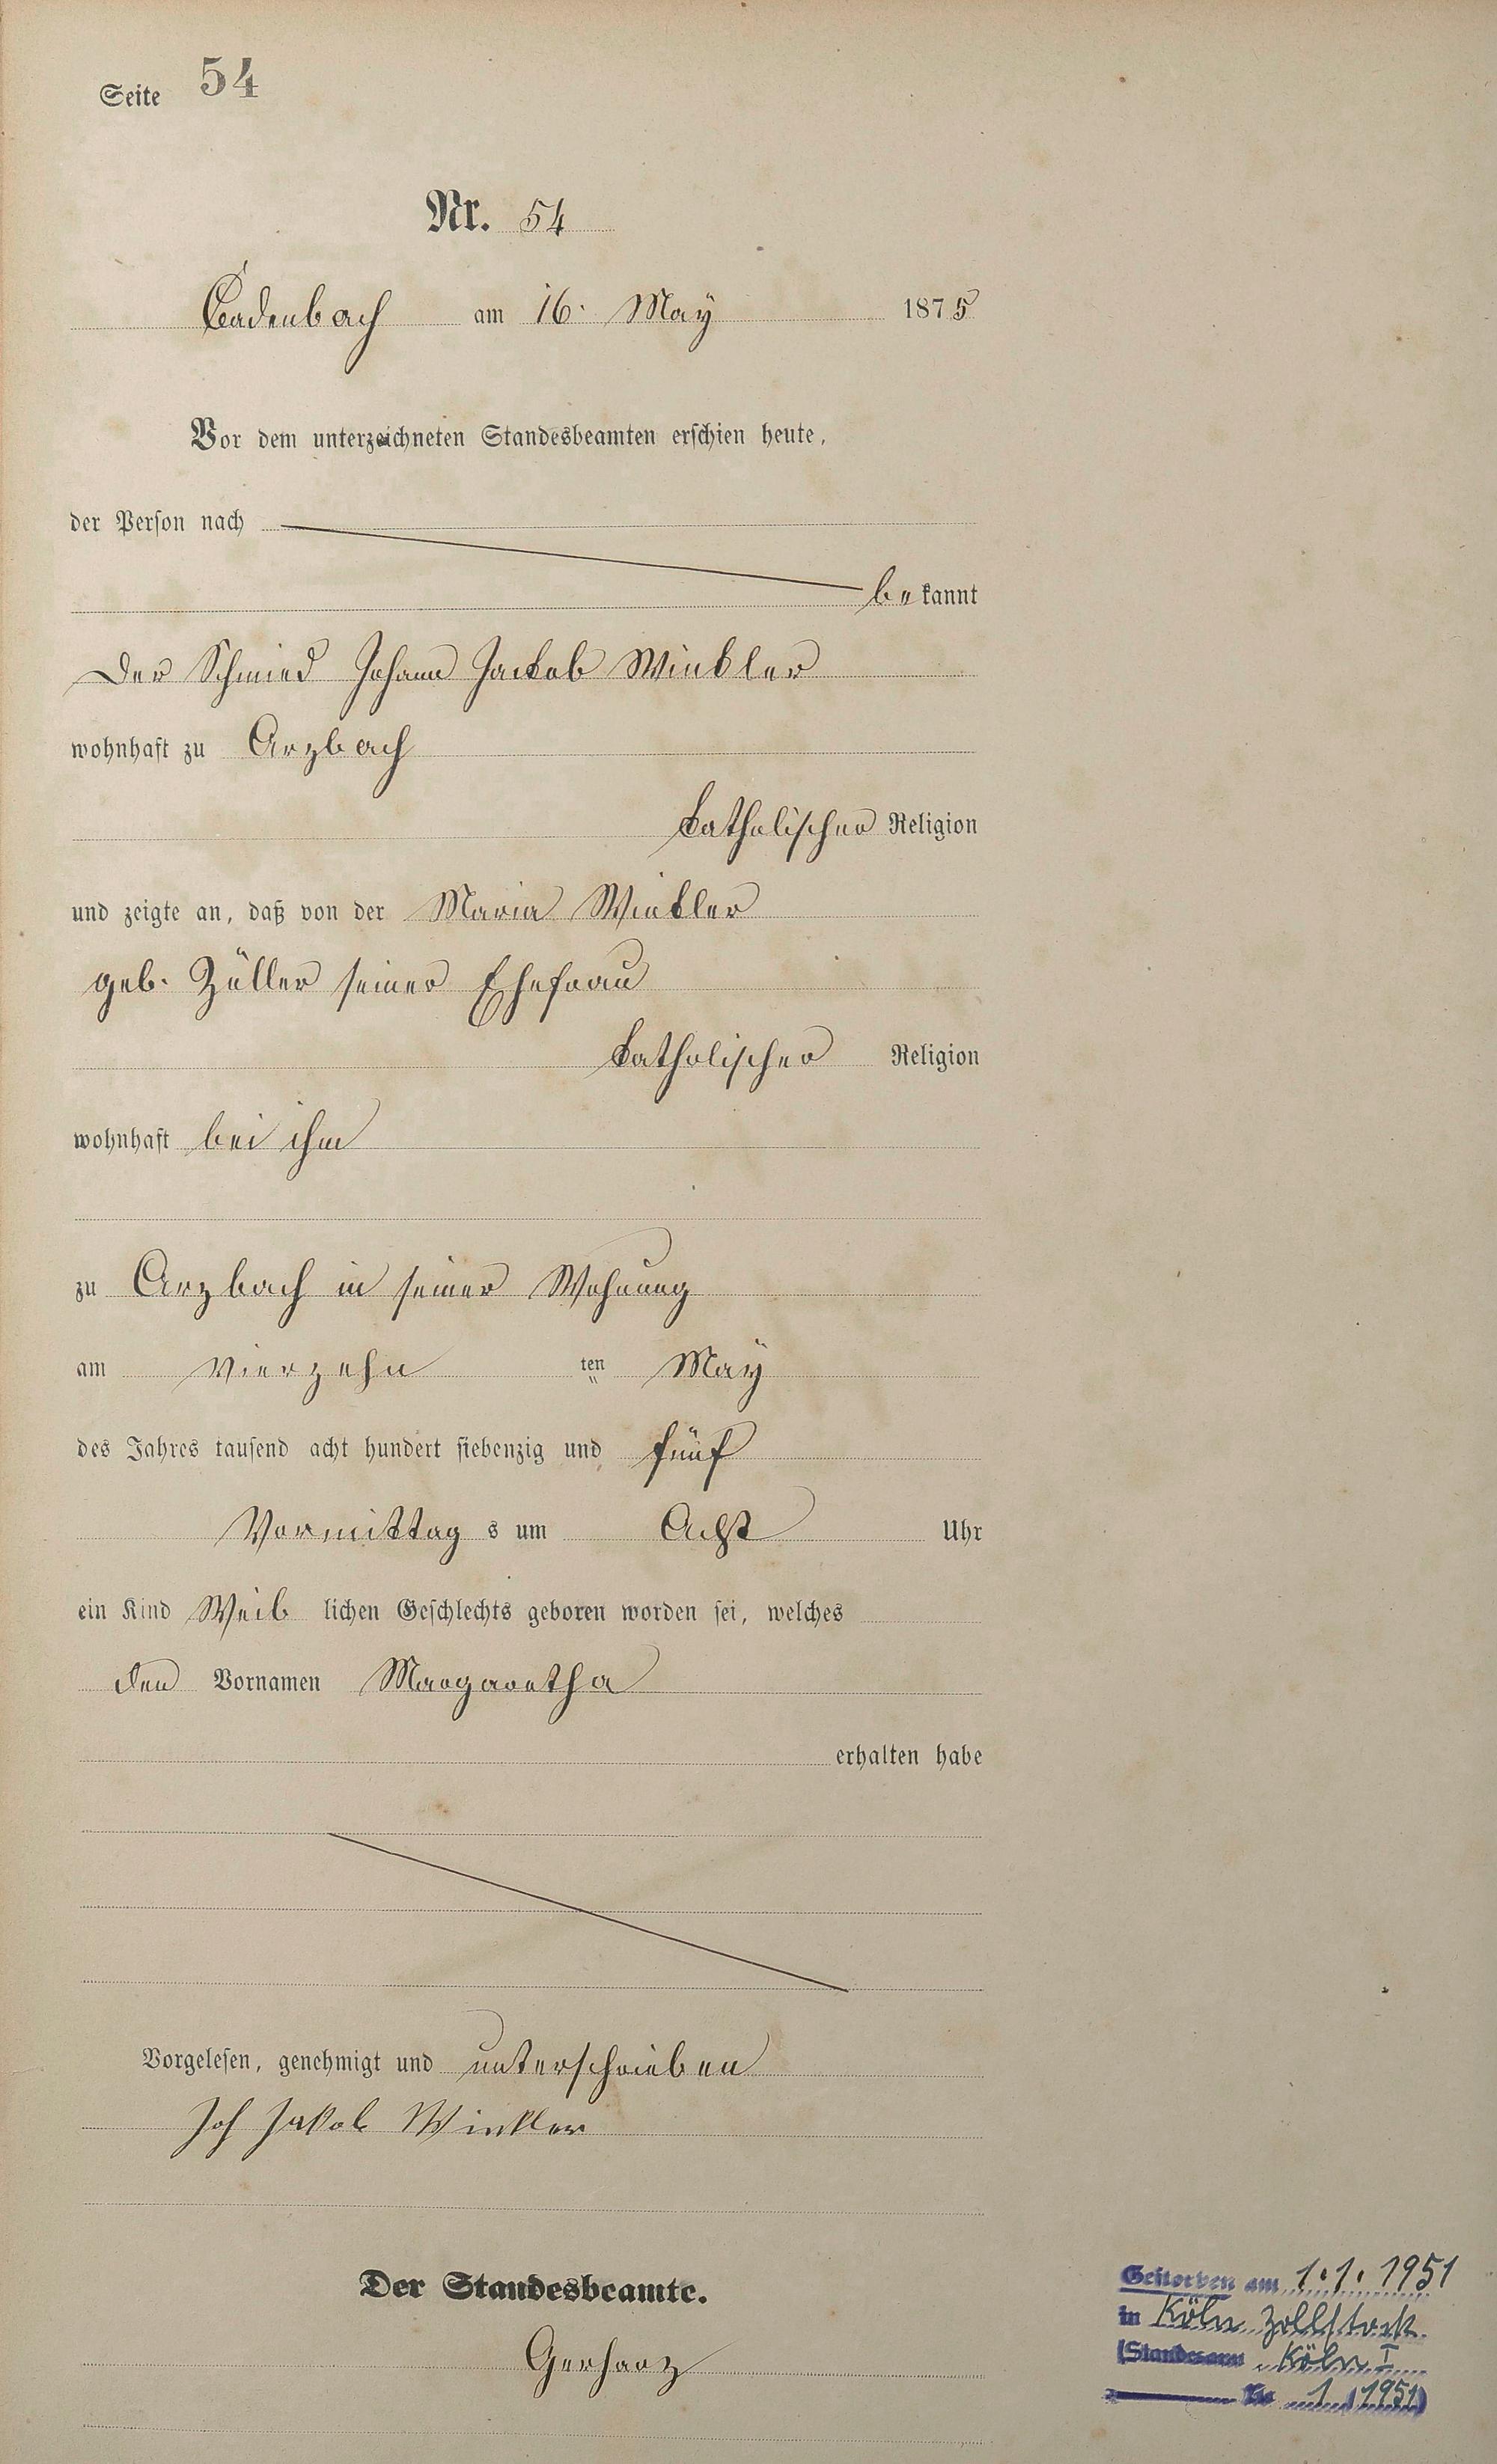 Seite 54
Nr. 54
Cadenbach am 16. May 1875
Vor dem unterzeichneten Standesbeamten erschien heute,
der Person nach
bekannt
Der Schmied Johann Jackob Winkler
wohnhaft zu Arzbach
katholischer Religion
und zeigte an, daß von der Maria Winkler
geb. Züller seiner Ehefrau
katholischer Religion
wohnhaft bei ihm
zu Arzbach in seiner Wohnung
am vierzehn ten May
des Jahres tausend acht hundert siebenzig und fünf
Vormittag s um Acht Uhr
ein Kind Weib lichen Geschlechts geboren worden sei, welches
den Vornamen Margaretha
erhalten habe
Vorgelesen, genehmigt und unterschrieben
Joh Jakob Winkler
Der Standesbeamte.
Gerharz
Gestorben am 1.1.1951
in Köln Zollstock
(Standesamt Köln I
Nr. 1 / 1951)